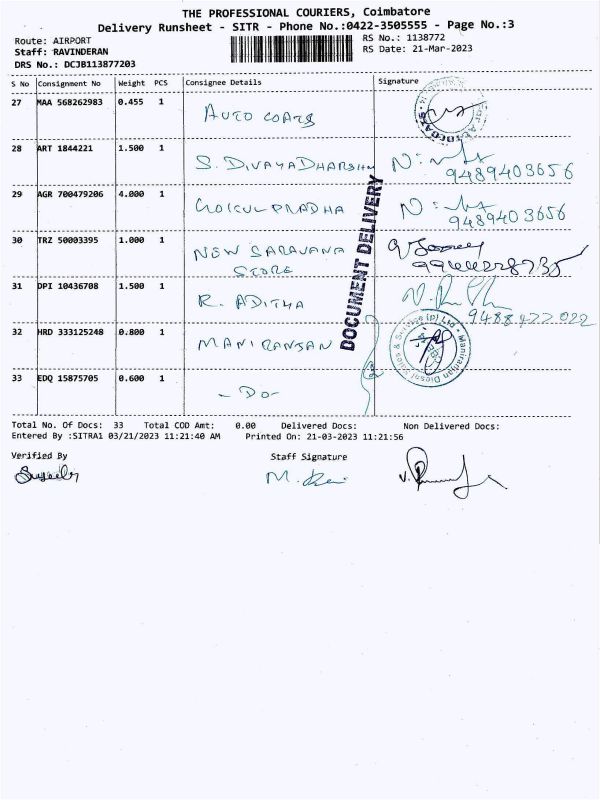 THE PROFESSIONAL COURIERS, Coimbatore
Delivery Runsheet - SITR - Phone No.:0422-3505555 - Page No.:3
Route: AIRPORT
Staff: RAVINDERAN
DRS No.: DCJB113877203
RS No.: 1138772
RS Date: 21-Mar-2023
S No Consignment No Weight PCS Consignee Details Signature
27 MAA 568262983 0.455 1 AUTO COATS
28 ART 1844221 1.500 1 S. DIVAYADHARSHNI
9489403656
29 AGR 700479206 4.000 1 GOKULPRADHA
9489403656
30 TRZ 50003395 1.000 1 NEW SARAVANA
STORE
31 DPI 10436708 1.500 1 R. ADITHA
9488477022
32 HRD 333125248 0.800 1 MANIRANJAN
33 EDQ 15875705 0.600 1 - DO -
DOCUMENT DELIVERY
Maniranjan Diesel Sales & Service (p) Ltd
Total No. Of Docs: 33 Total COD Amt: 0.00 Delivered Docs: Non Delivered Docs:
Entered By :SITRA1 03/21/2023 11:21:40 AM Printed On: 21-03-2023 11:21:56
Verified By Staff Signature